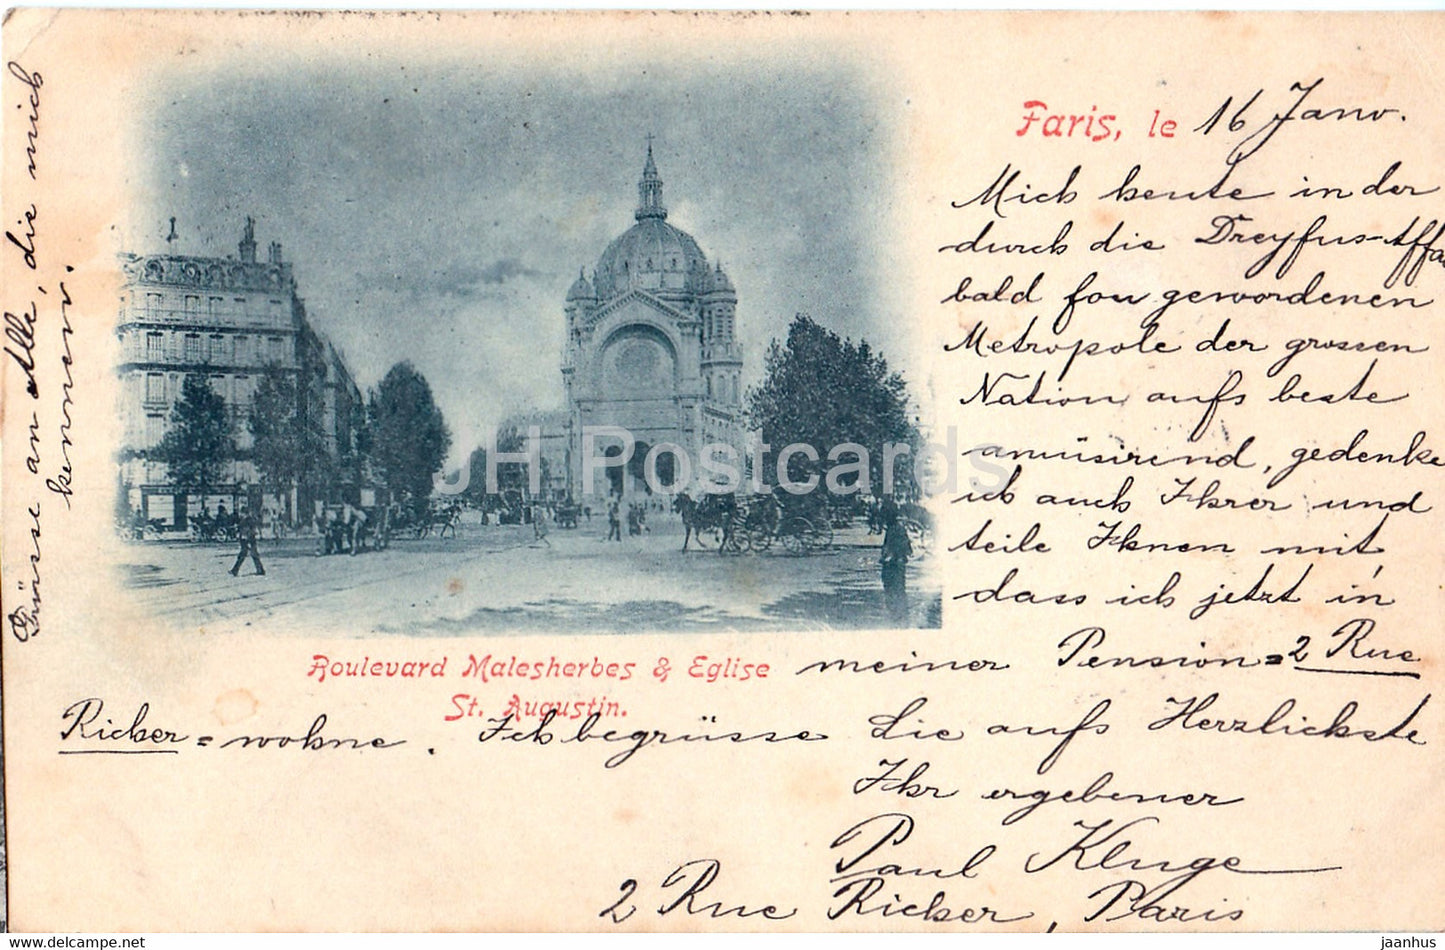 Paris, le 16 Janv.
Mich heute in der
durch die Dreyfus-Affa
bald fou gewordenen
Metropole der grossen
Nation aufs beste
amüsirend, gedenke
ich auch Ihrer und
teile Ihnen mit,
dass ich jetzt in
Boulevard Malesherbes & Eglise
St. Augustin.
meiner Pension = 2 Rue
Richer = wohne. Ich begrüsse Sie aufs Herzlichste
Ihr ergebener
Paul Kluge
2 Rue Richer, Paris
Grüsse an Alle, die mich
kennen.
JH Postcards
WWW.HIPPOSTCARD.COM/STORE/JHPOSTCARDS
jaanhus